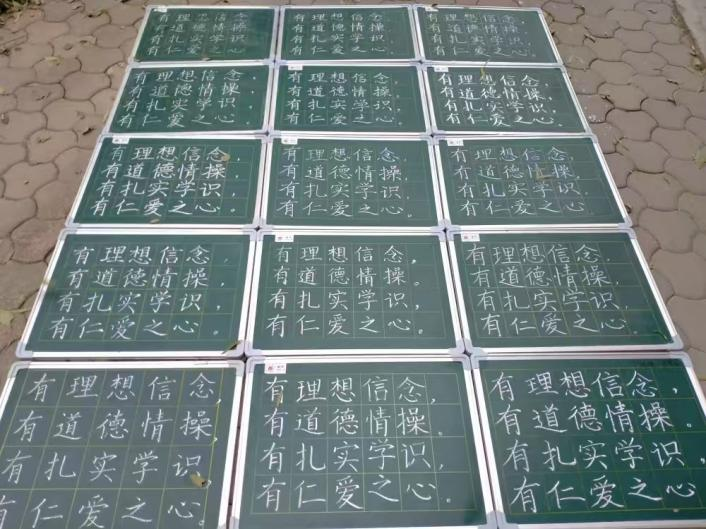 有理想信念，
有道德情操，
有扎实学识，
有仁爱之心。
有理想信念，
有道德情操，
有扎实学识，
有仁爱之心。
有理想信念，
有道德情操，
有扎实学识，
有仁爱之心。
有理想信念，
有道德情操，
有扎实学识，
有仁爱之心。
有理想信念，
有道德情操，
有扎实学识，
有仁爱之心。
有理想信念，
有道德情操，
有扎实学识，
有仁爱之心。
有理想信念，
有道德情操，
有扎实学识，
有仁爱之心。
有理想信念，
有道德情操，
有扎实学识，
有仁爱之心。
有理想信念，
有道德情操，
有扎实学识，
有仁爱之心。
有理想信念，
有道德情操，
有扎实学识，
有仁爱之心。
有理想信念，
有道德情操，
有扎实学识，
有仁爱之心。
有理想信念，
有道德情操，
有扎实学识，
有仁爱之心。
有理想信念，
有道德情操，
有扎实学识，
有仁爱之心。
有理想信念，
有道德情操，
有扎实学识，
有仁爱之心。
有理想信念，
有道德情操，
有扎实学识，
有仁爱之心。